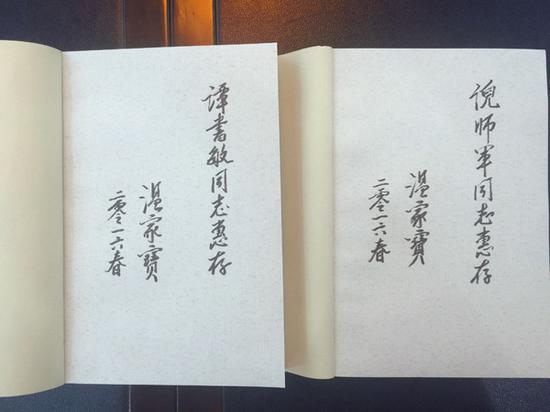 谭书敏同志惠存
温家宝
二零一六春
倪师军同志惠存
温家宝
二零一六春